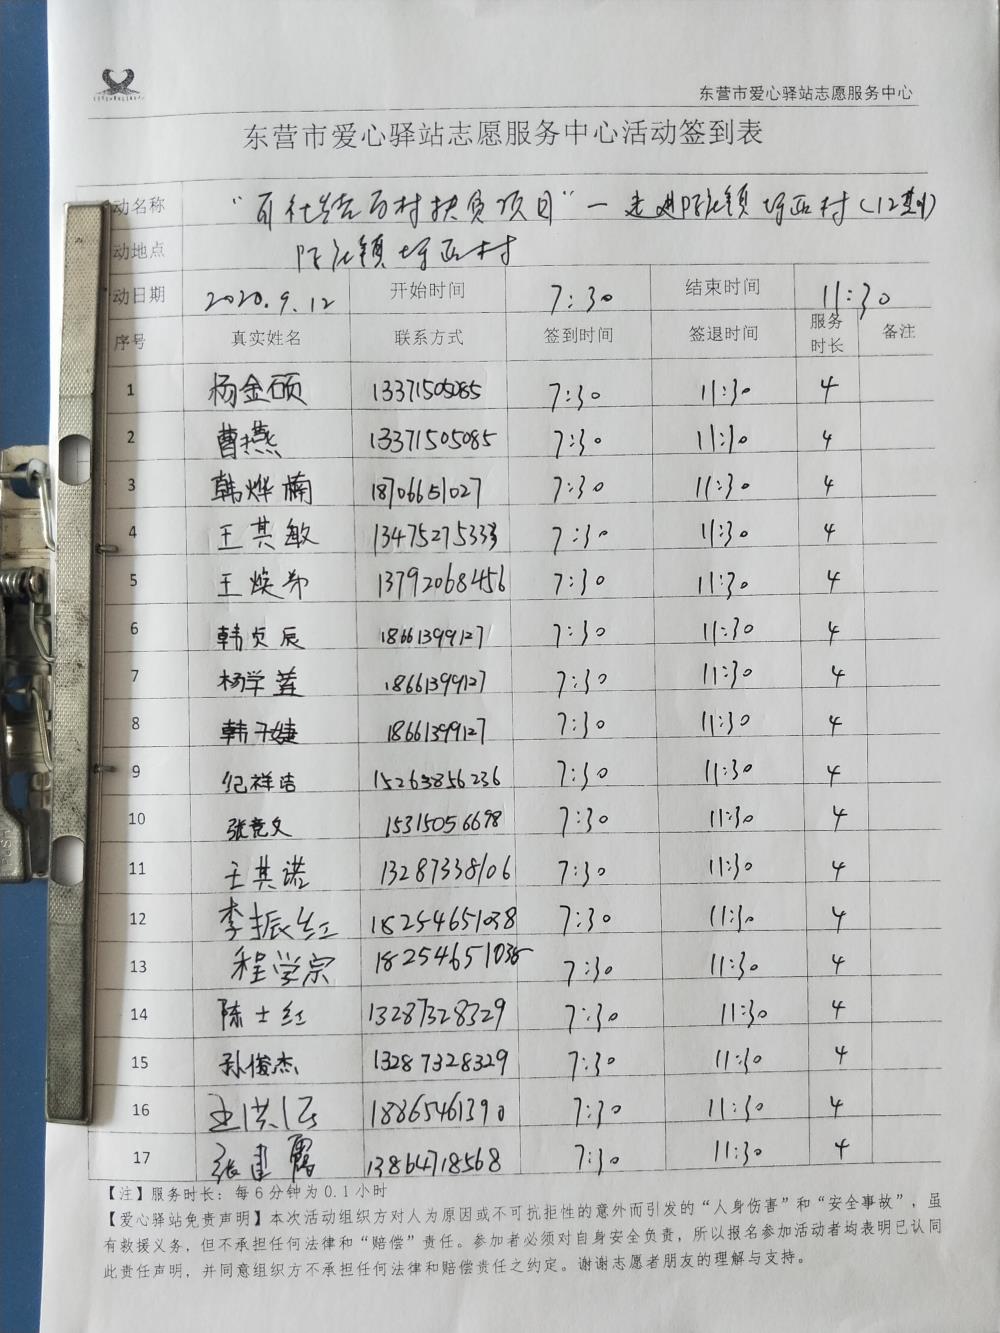 东营市爱心驿站志愿服务中心
东营市爱心驿站志愿服务中心活动签到表
动名称 "百社结百村扶贫项目"一走进陈庄镇 村(12期)
动地点 陈庄镇 村
动日期 2020.9.12 开始时间 7:30 结束时间 11:30
序号 真实姓名 联系方式 签到时间 签退时间 服务时长 备注
1 杨金硕 13371505085 7:30 11:30 4
2 曹燕 13371505085 7:30 11:30 4
3 韩烨楠 18706651027 7:30 11:30 4
4 王其敏 13475275333 7:30 11:30 4
5 王焕 13792068456 7:30 11:30 4
6 韩贞辰 18661399127 7:30 11:30 4
7 杨学 18661399127 7:30 11:30 4
8 韩子婕 18661399127 7:30 11:30 4
9 纪祥洁 15263856236 7:30 11:30 4
10 张竞文 15315056698 7:30 11:30 4
11 王其诺 13287338106 7:30 11:30 4
12 李振红 18254651038 7:30 11:30 4
13 程学宗 18254651038 7:30 11:30 4
14 陈士红 13287328329 7:30 11:30 4
15 孙俊杰 13287328329 7:30 11:30 4
16 王洪 18865461390 7:30 11:30 4
17 张建霞 13864718568 7:30 11:30 4
【注】服务时长：每6分钟为0.1小时
【爱心驿站免责声明】本次活动组织方对人为原因或不可抗拒性的意外而引发的“人身伤害”和“安全事故”，虽
有救援义务，但不承担任何法律和“赔偿”责任。参加者必须对自身安全负责，所以报名参加活动者均表明已认同
此责任声明，并同意组织方不承担任何法律和赔偿责任之约定。谢谢志愿者朋友的理解与支持。